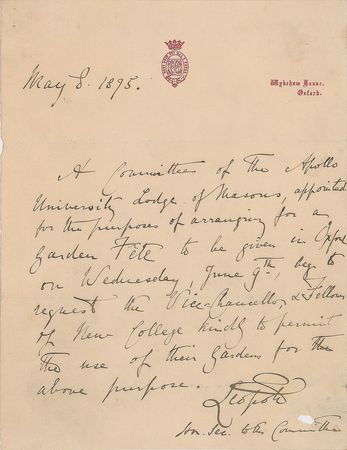 May 8. 1875.
Wykeham House,
Oxford.
A Committee of the Apollo
University Lodge of Masons, appointed
for the purposes of arranging for a
Garden Fête to be given in Oxford
on Wednesday, June 9th, beg to
request the Vice-Chancellor & Fellows
of New College kindly to permit
the use of their Gardens for the
above purpose.
Leopold
Hon. Sec. to the Committee